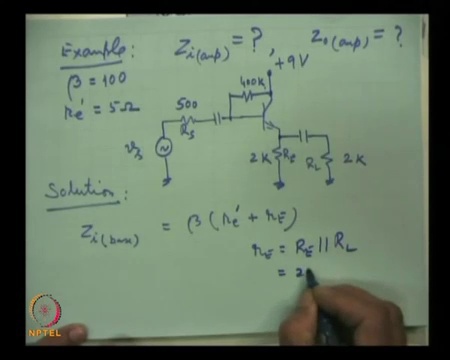 Example: Z i(amp) = ? Z o(amp) = ?
β = 100
re' = 5Ω
+9V
400K
500
Rs
vs
2K RE
RL 2K
Solution:
Z i(base) = β (re' + rE)
rE = RE || RL
= 2
NPTEL